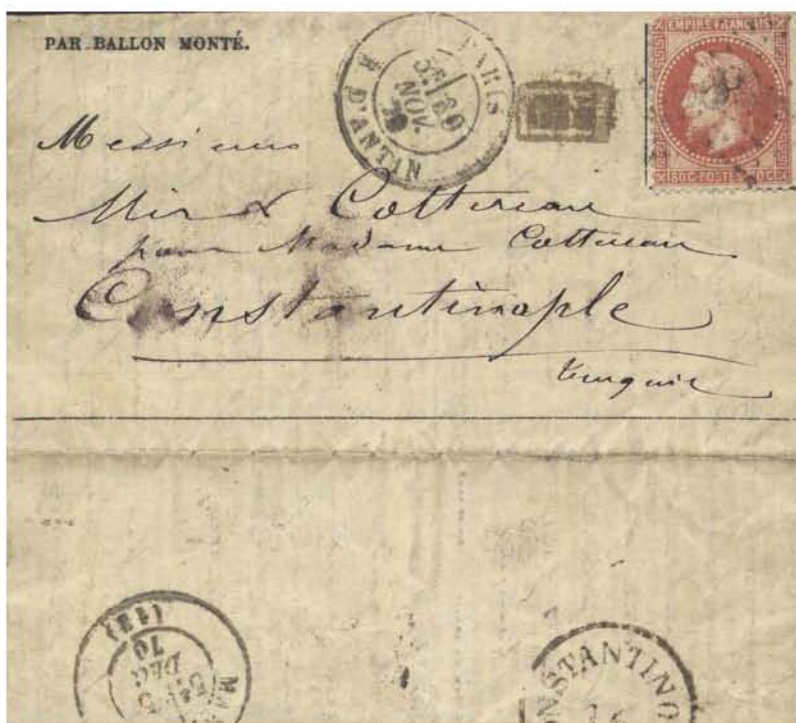 PAR BALLON MONTÉ.
PARIS
5E/30
NOV.
70
R. D'ANTIN
PD
EMPIRE FRANÇAIS
80C·POSTES·80C
Messieurs
Mir & Cottereau
pour Madame Cottereau
Constantinople
Turquie
(12)
70
DEC
MAR
CONSTANTINO